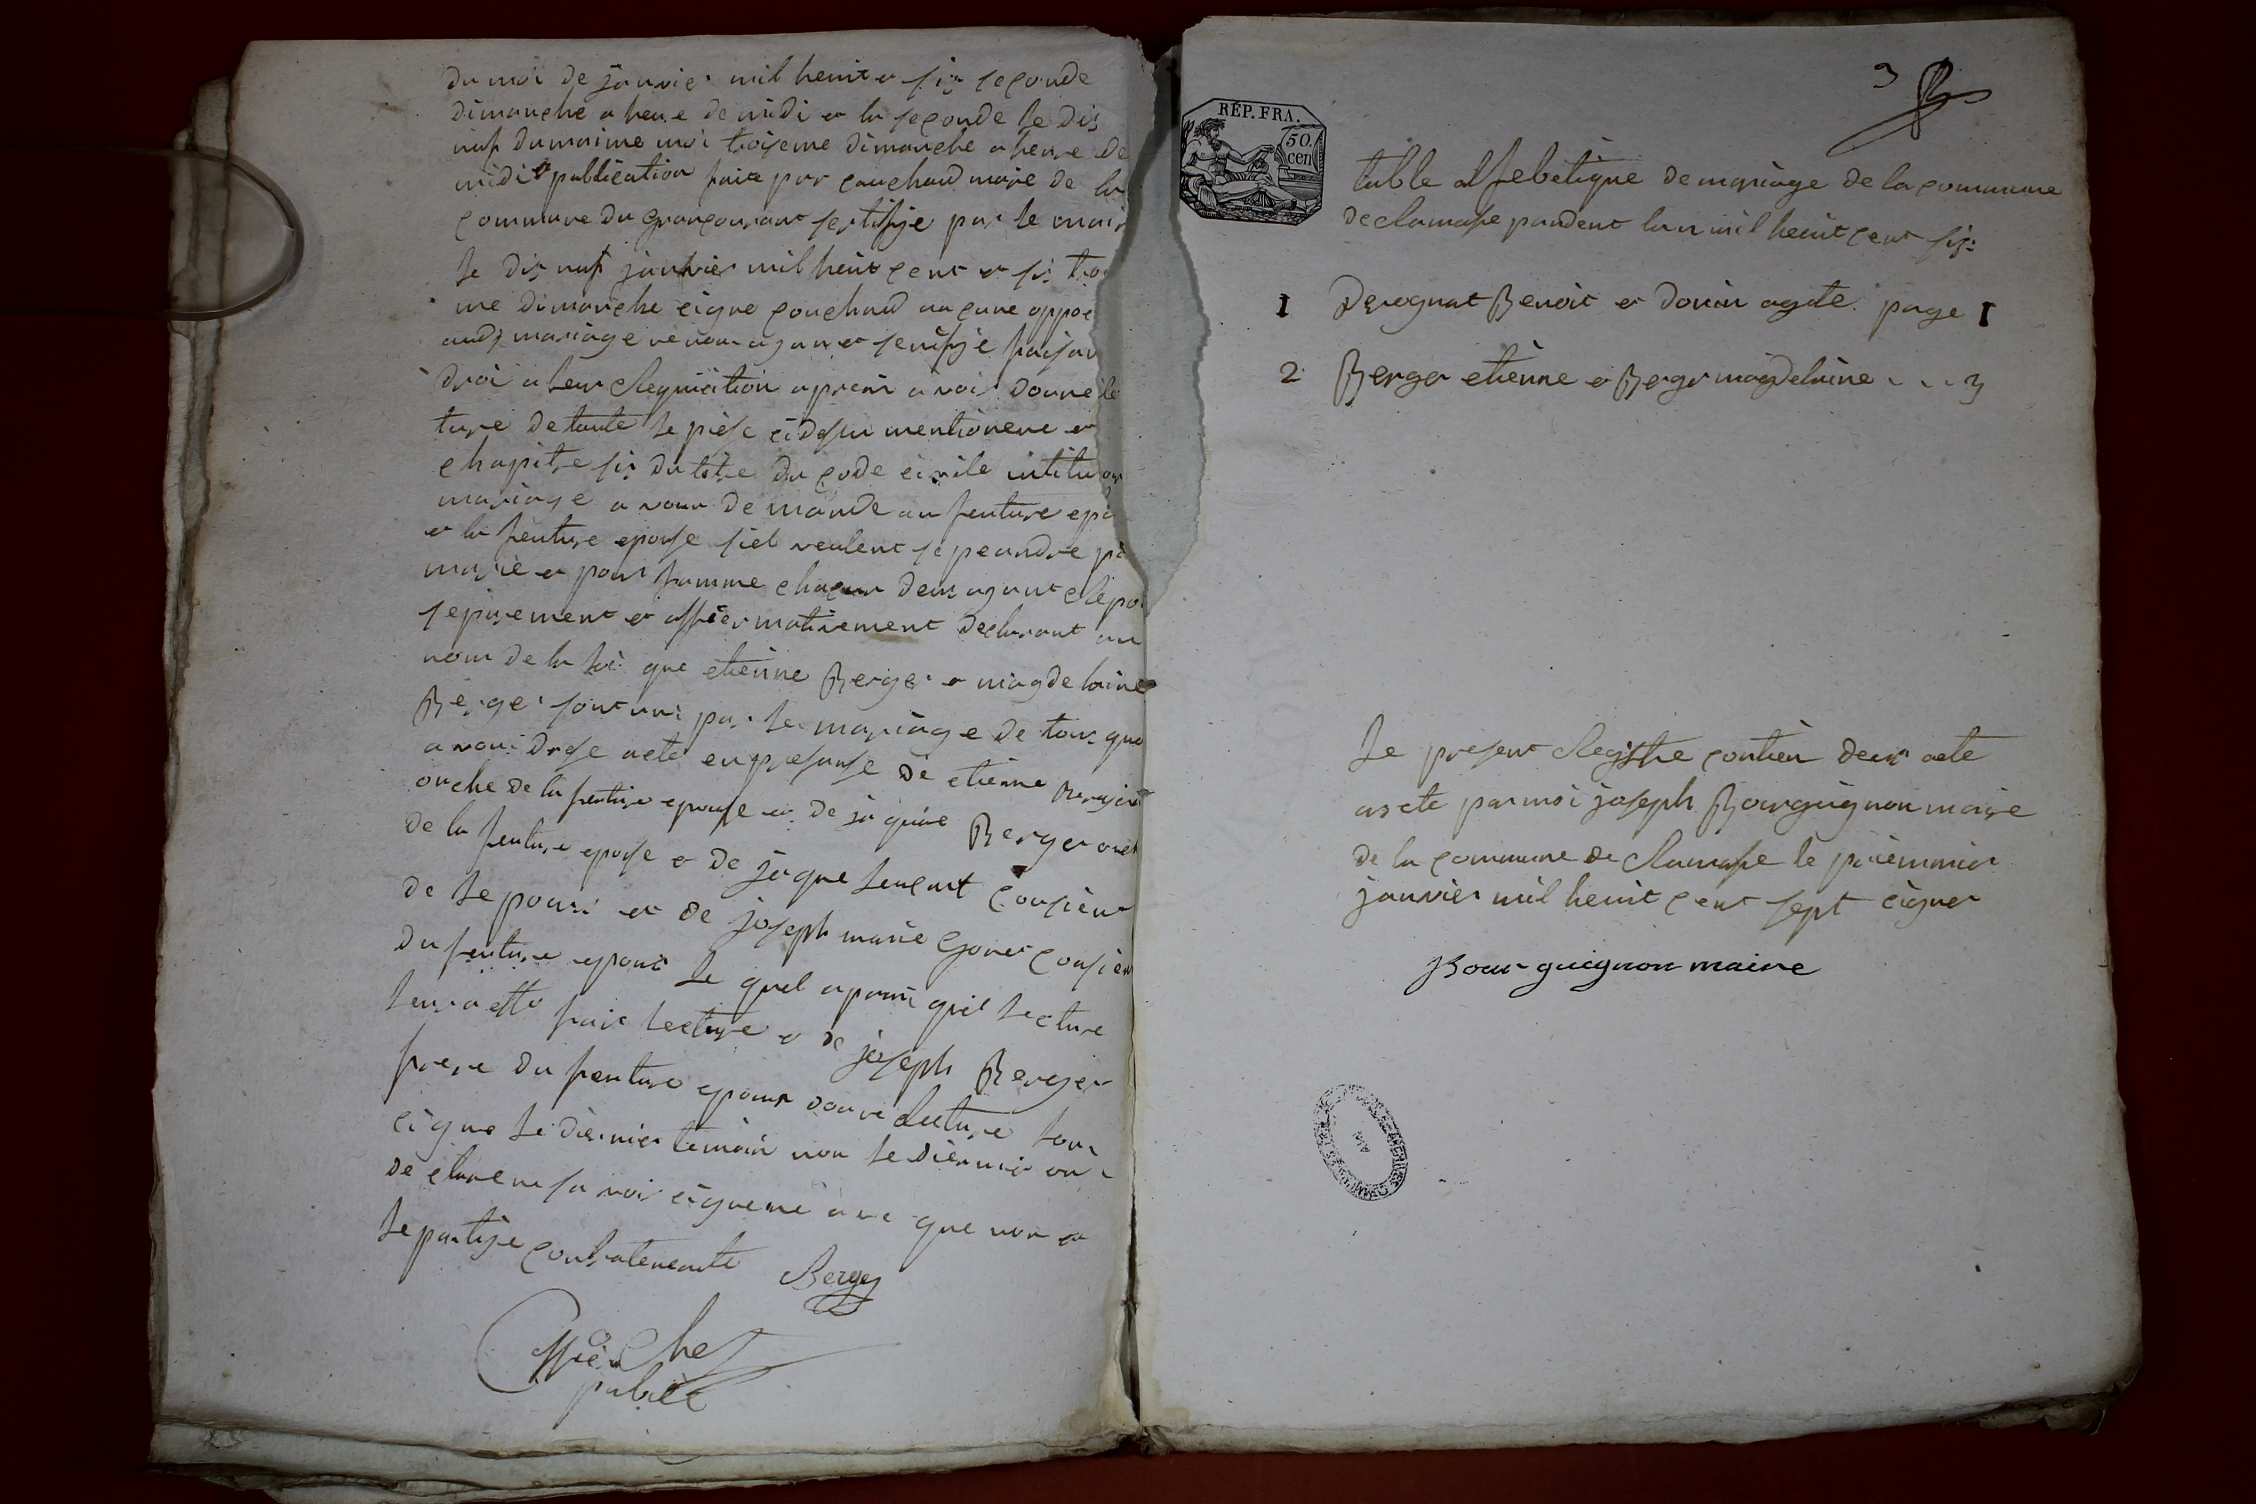 du moi de janvier mil heuit et six seconde
dimanche a heure de midi et la seconde le dis
nuf du maime moi troiseme dimanche a heure de
midi publication faite par couchoud maire de la
commune du grancourant sertifye par le mair
le dis nuf janvier mil heuit cent et six troi
me dimanche cigne couchoud aucune oppoc
audi mariage ne nous ayant et senifye faisan
droi a leur Requiation apraiu avoir donne le
ture de toute le pièse cidesu mentionene et
chapitre six du titre du code civile intitu
mariage avour demande au feuture epo
et la feuture epouse siel veulent se peandre po
marie et pour famme chaqun deux ayant Répon
separement et affiermativement declarant au
nom de la loi que etiènne Berger et magdelaine
Berger sont uni par le mariage de tous quo
avoui drese acte en presanse de etiènne Berger
oncle de la feuture epouse et de jaque Berger oncl
de la feuture epouse et de jaque cousient
de lepoux et de joseph marie goner cousien
du feuture epoux le quel apraui quil lecture
leur a ette fait lecture et de joseph Berger
frere du feuture epoux lecture
cigne le diernier temoin non le diernier on
declarene savoir cigne ne que non
le partije contratenante Berger
officier
public
3
RÉP. FRA.
50.
cen
table alfebetique de mariage de la commune
de clamase pandent lan mil heuit cent six
1 Derognat Benoit et donin agate page 1
2 Berger etiènne et Berger magdelaine . . . 3
le present Registre contien deux acte
arete par moi joseph Bourguignon maire
de la commune de clamase le priemmier
janvier mil heuit cent sept cigner
Bourguignon maire